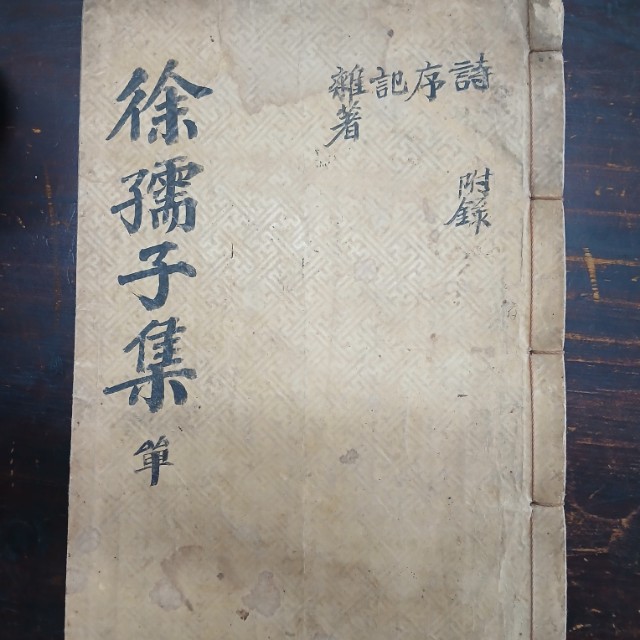 徐孺子集 單
詩
序
記
雜著
附錄